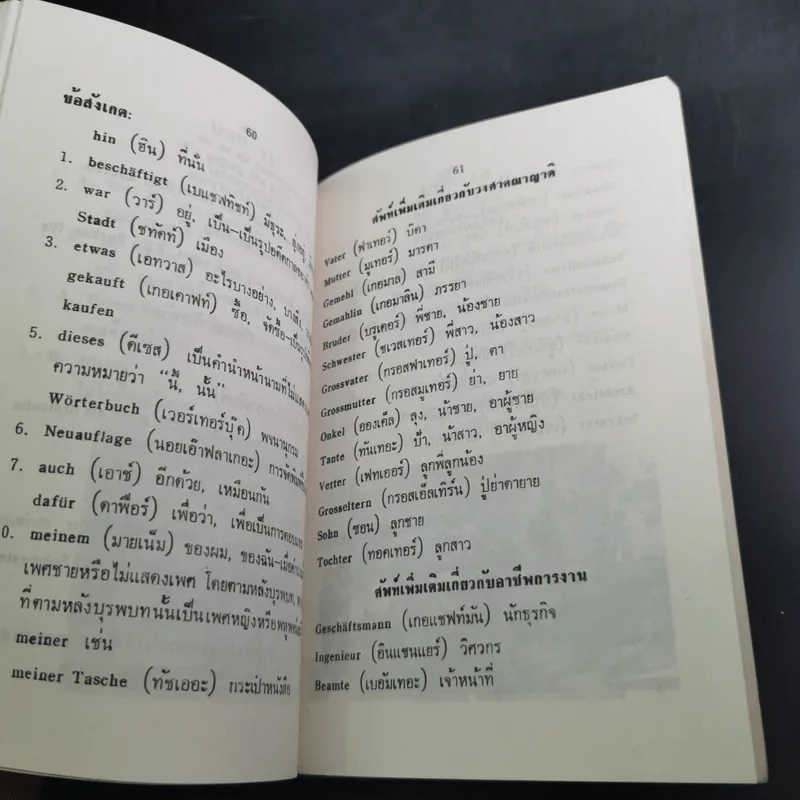 60
ข้อสังเกต:
hin (ฮิน) ที่นั่น
1. beschäftigt (เบแชฟทิชท์) มีธุระ, ยุ่งอยู่
2. war (วาร์) อยู่, เป็น-เป็นรูปอดีตกาลของ
Stadt (ชทัดท์) เมือง
3. etwas (เอทวาส) อะไรบางอย่าง, บางสิ่ง,
gekauft (เกอเคาฟท์) ซื้อ, จัดซื้อ-เป็นรูป
kaufen
5. dieses (ดีเซส) เป็นคำนำหน้านามที่ไม่แสดง
ความหมายว่า "นี้, นั้น"
Wörterbuch (เวอร์เทอร์บุ๊ค) พจนานุกรม
6. Neuauflage (นอยเอ๊าฟลาเกอะ) การจัดพิมพ์
7. auch (เอาช์) อีกด้วย, เหมือนกัน
dafür (ดาฟือร์) เพื่อว่า, เพื่อเป็นการตอบแทน
0. meinem (มายเน็ม) ของผม, ของฉัน-เมื่อ
เพศชายหรือไม่แสดงเพศ โดยตามหลังบุรพบท,
ที่ตามหลังบุรพบทนั้นเป็นเพศหญิงหรือพหูพจน์
meiner เช่น
meiner Tasche (ทัชเออะ) กระเป๋าหนังถือ
61
ศัพท์เพิ่มเติมเกี่ยวกับวงศาคณาญาติ
Vater (ฟาเทอร์) บิดา
Mutter (มูเทอร์) มารดา
Gemehl (เกอมาล) สามี
Gemahlin (เกอมาลิน) ภรรยา
Bruder (บรูเดอร์) พี่ชาย, น้องชาย
Schwester (ชเวสเทอร์) พี่สาว, น้องสาว
Grossvater (กรอสฟาเทอร์) ปู่, ตา
Grossmutter (กรอสมูเทอร์) ย่า, ยาย
Onkel (อองเค็ล) ลุง, น้าชาย, อาผู้ชาย
Tante (ทันเทอะ) ป้า, น้าสาว, อาผู้หญิง
Vetter (เฟทเออร์) ลูกพี่ลูกน้อง
Grosseltern (กรอสเอ็ลเทิร์น) ปู่ย่าตายาย
Sohn (ซอน) ลูกชาย
Tochter (ทอคเทอร์) ลูกสาว
ศัพท์เพิ่มเติมเกี่ยวกับอาชีพการงาน
Geschäftsmann (เกอแชฟท์มัน) นักธุรกิจ
Ingenieur (อินแชนแยร์) วิศวกร
Beamte (เบอัมเทอะ) เจ้าหน้าที่